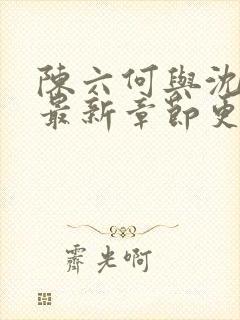 陳六何與沈
最新章節更
霽光啊